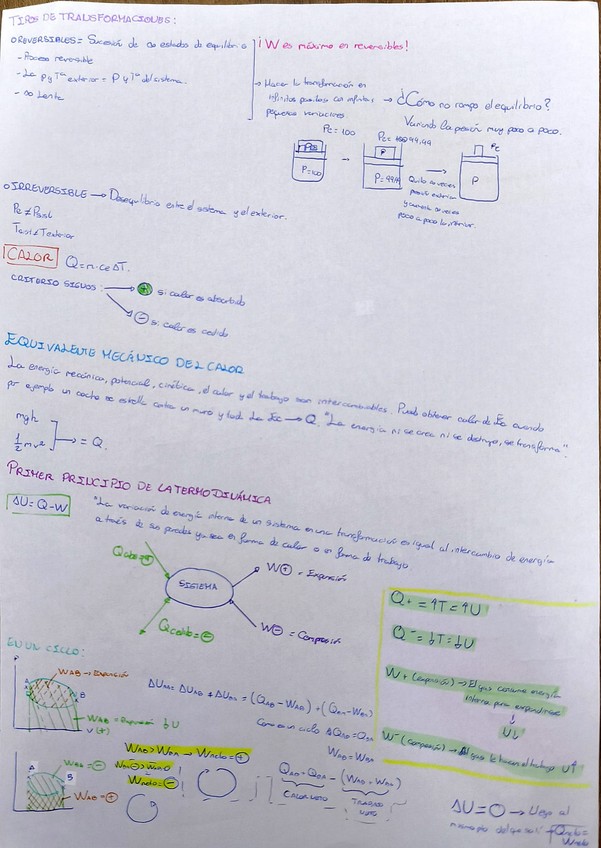 TIPOS DE TRANSFORMACIONES:
○ REVERSIBLES = Sucesión de estados de equilibrio
- Proceso reversible
- La P y Tª exterior = P y Tª del sistema.
- Lento
¡W es máximo en reversibles!
→ Hacer la transformación en infinitos pasitos con infinitas pequeñas variaciones
→ ¿Cómo no rompo el equilibrio?
Variando la presión muy poco a poco.
Pe = 100
P=100
99,99
P= 99,99
Pe
P
Quito a veces
presión exterior
poco a poco
○ IRREVERSIBLE → Desequilibrio entre el sistema y el exterior.
Pe ≠ Psist
Tsist ≠ Texterior
CALOR Q = m · ce ΔT.
CRITERIO SIGNOS: → + si calor es absorbido
→ - si calor es cedido
EQUIVALENTE MECÁNICO DEL CALOR
La energía mecánica, potencial, cinética, el calor y el trabajo son intercambiables. Puedo obtener calor de Ec cuando
por ejemplo un coche se estrella contra un muro y toda la Ec → Q. "La energía ni se crea ni se destruye, se transforma".
mgh
½ mv² → = Q.
PRIMER PRINCIPIO DE LA TERMODINÁMICA
ΔU = Q - W
"La variación de energía interna de un sistema en una transformación es igual al intercambio de energía
a través de sus paredes ya sea en forma de calor o en forma de trabajo
Qabs = +
SISTEMA
W + = Expansión
W - = Compresión
Qcedido = -
Q+ = ↑T = ↑U
Q- = ↓T = ↓U
W + (expansión) → El gas consume energía
interna para expandirse
↓
U↓
W- (compresión) → Al gas le hacen el trabajo U↑
EN UN CICLO:
P
WAB → Expansión
A
B
V (+)
ΔUAA = ΔUAB + ΔUBA = (QAB - WAB) + (QBA - WBA)
WAB > WBA → Wneto = +
Wneto = -
A
B
WAB = +
CALOR NETO
TRABAJO NETO
ΔU = 0 → Llego al
mismo
Qneto =
Wneto